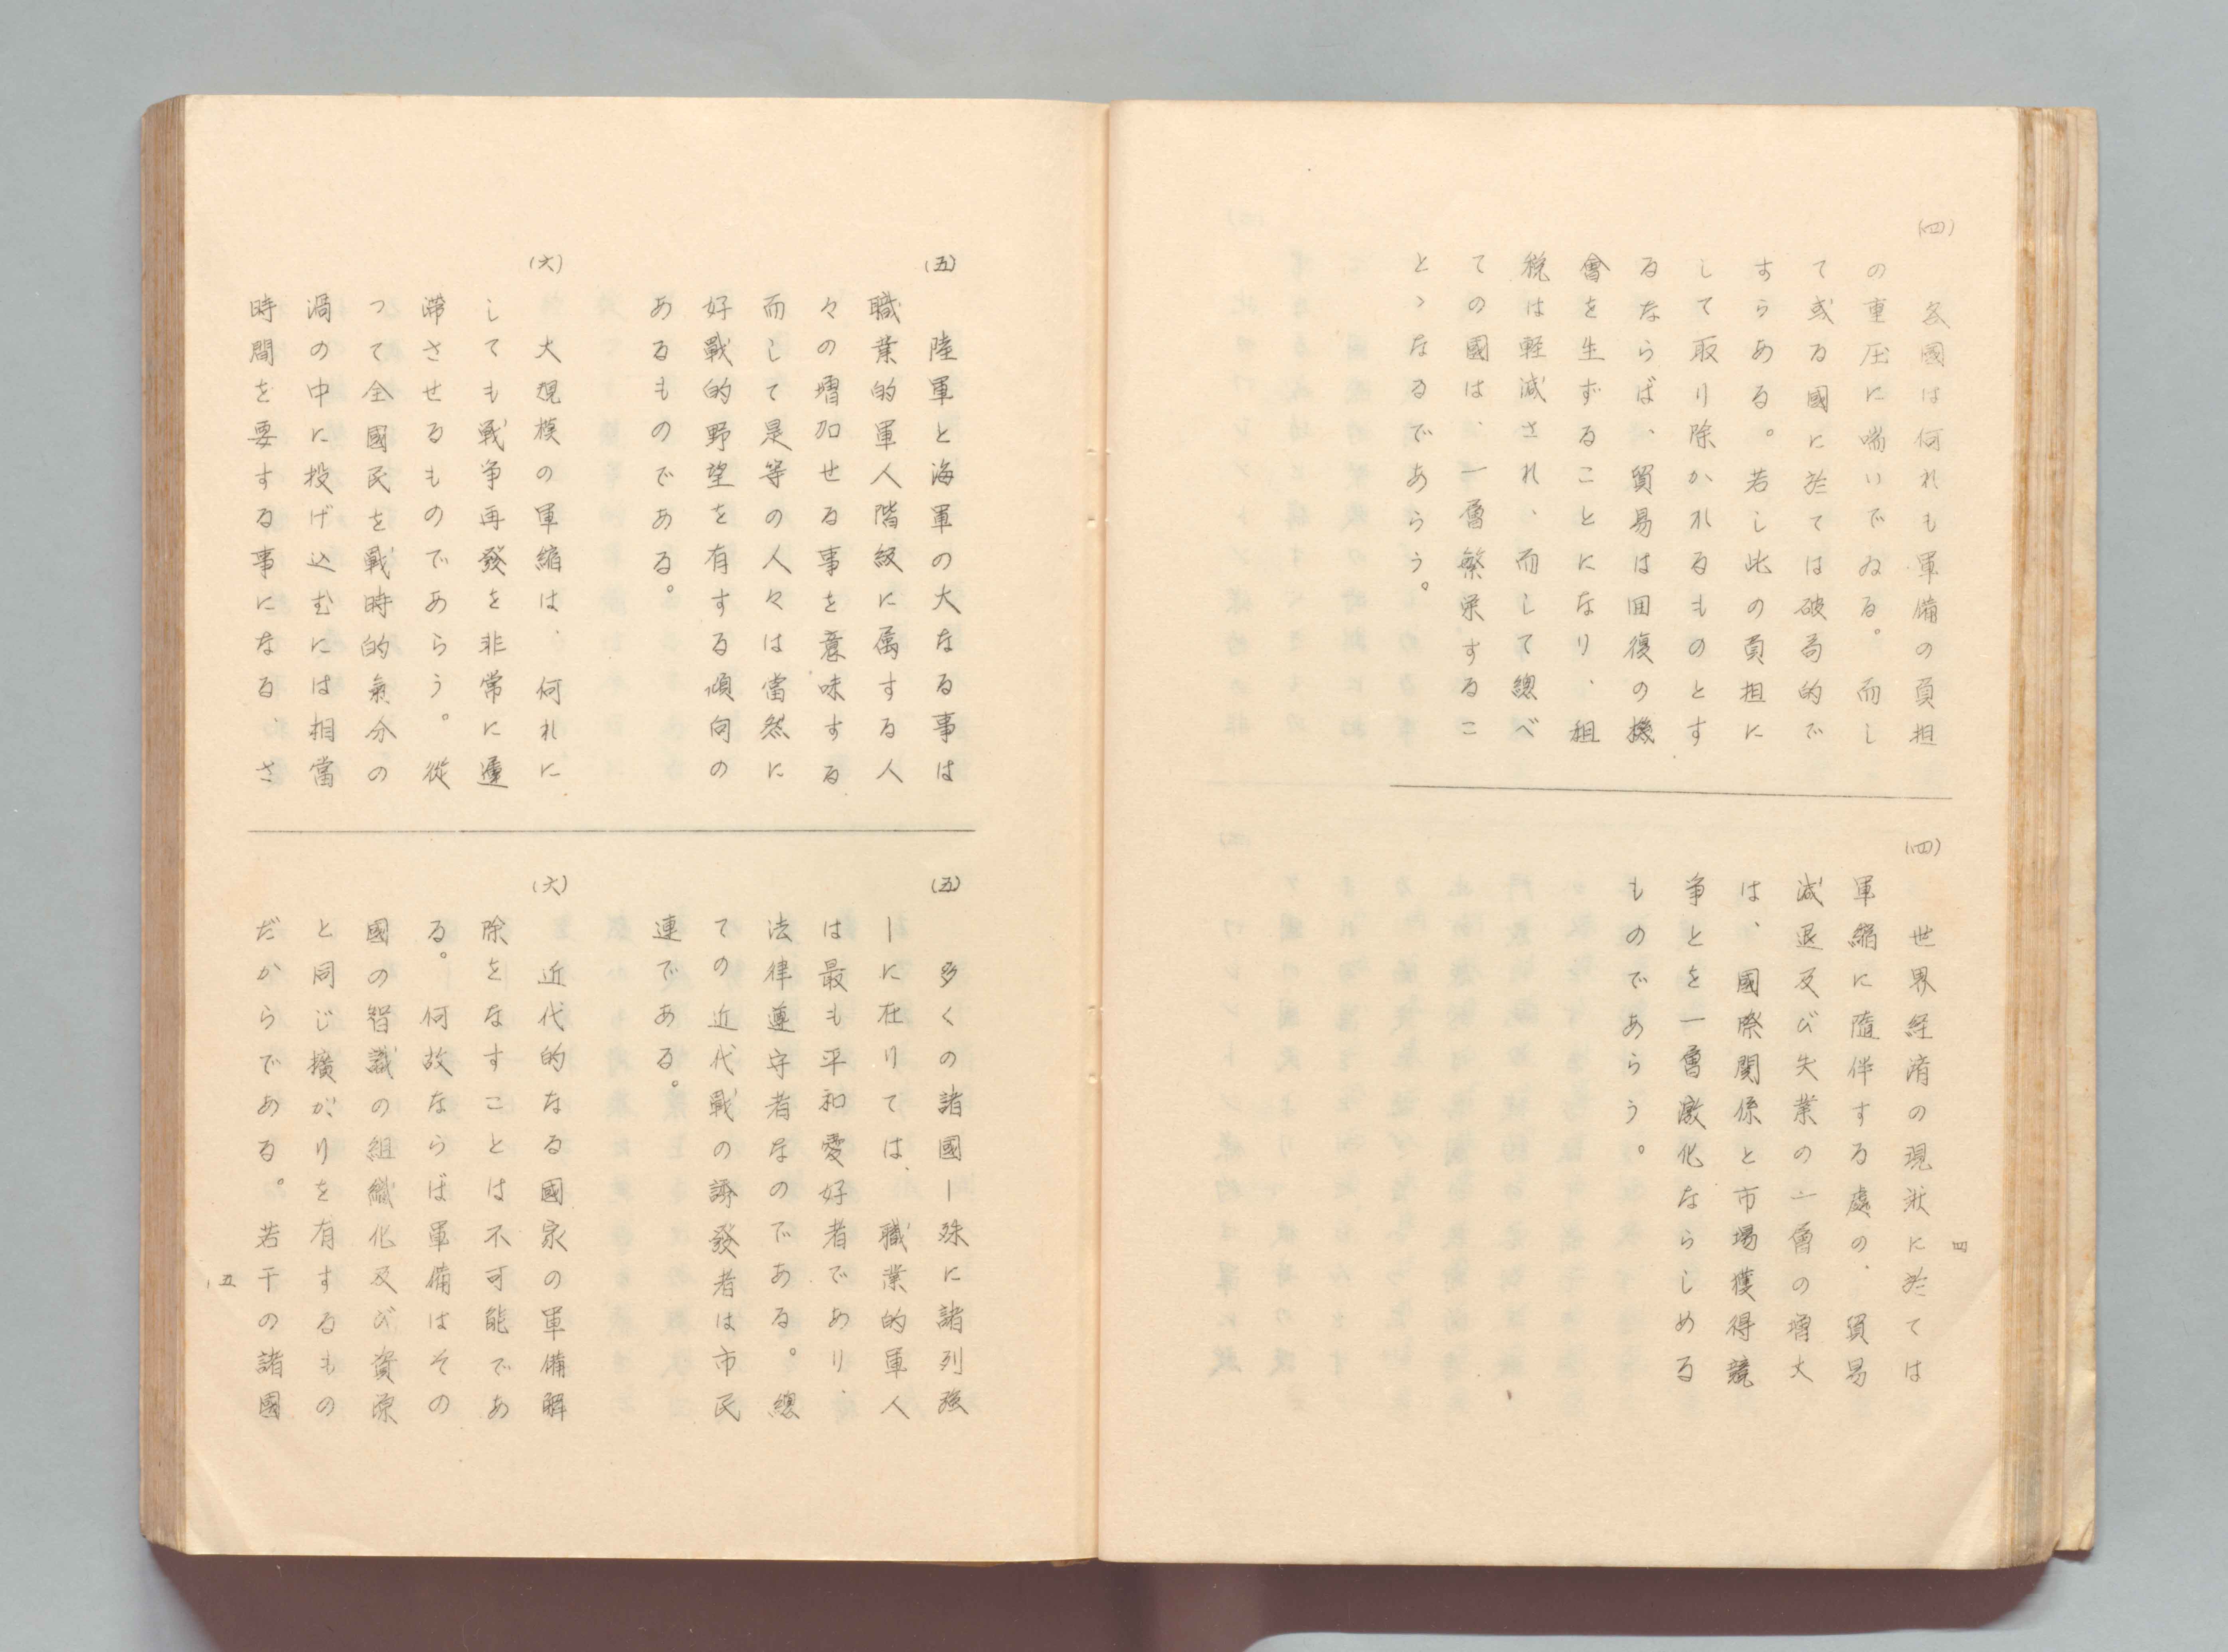 (四)
各國は何れも軍備の負担
の重圧に喘いでゐる。而し
て或る國に於ては破局的で
すらある。若し此の負担に
して取り除かれるものとす
るならば、貿易は囬復の機
會を生ずることになり、租
税は軽減され、而して總べ
ての國は、一層繁栄するこ
とゝなるであらう。
(四)
世界経済の現狀に於ては
軍縮に隨伴する處の、貿易
減退及び失業の一層の増大
は、國際関係と市場獲得競
争とを一層激化ならしめる
ものであらう。
四
(五)
陸軍と海軍の大なる事は
職業的軍人階級に属する人
々の増加せる事を意味する
而して是等の人々は當然に
好戰的野望を有する傾向の
あるものである。
(六)
大規模の軍縮は、何れに
しても戦争再發を非常に遲
滞させるものであらう。從
つて全國民を戰時的氣分の
渦の中に投げ込むには相當
時間を要する事になる、さ
(五)
多くの諸國ー殊に諸列强
ーに在りては、職業的軍人
は最も平和愛好者であり、
法律遵守者なのである。總
ての近代戰の誘發者は市民
連である。
(六)
近代的なる國家の軍備解
除をなすことは不可能であ
る。何故ならば軍備はその
國の智識の組織化及び資源
と同じ擴がりを有するもの
だからである。若干の諸國
五